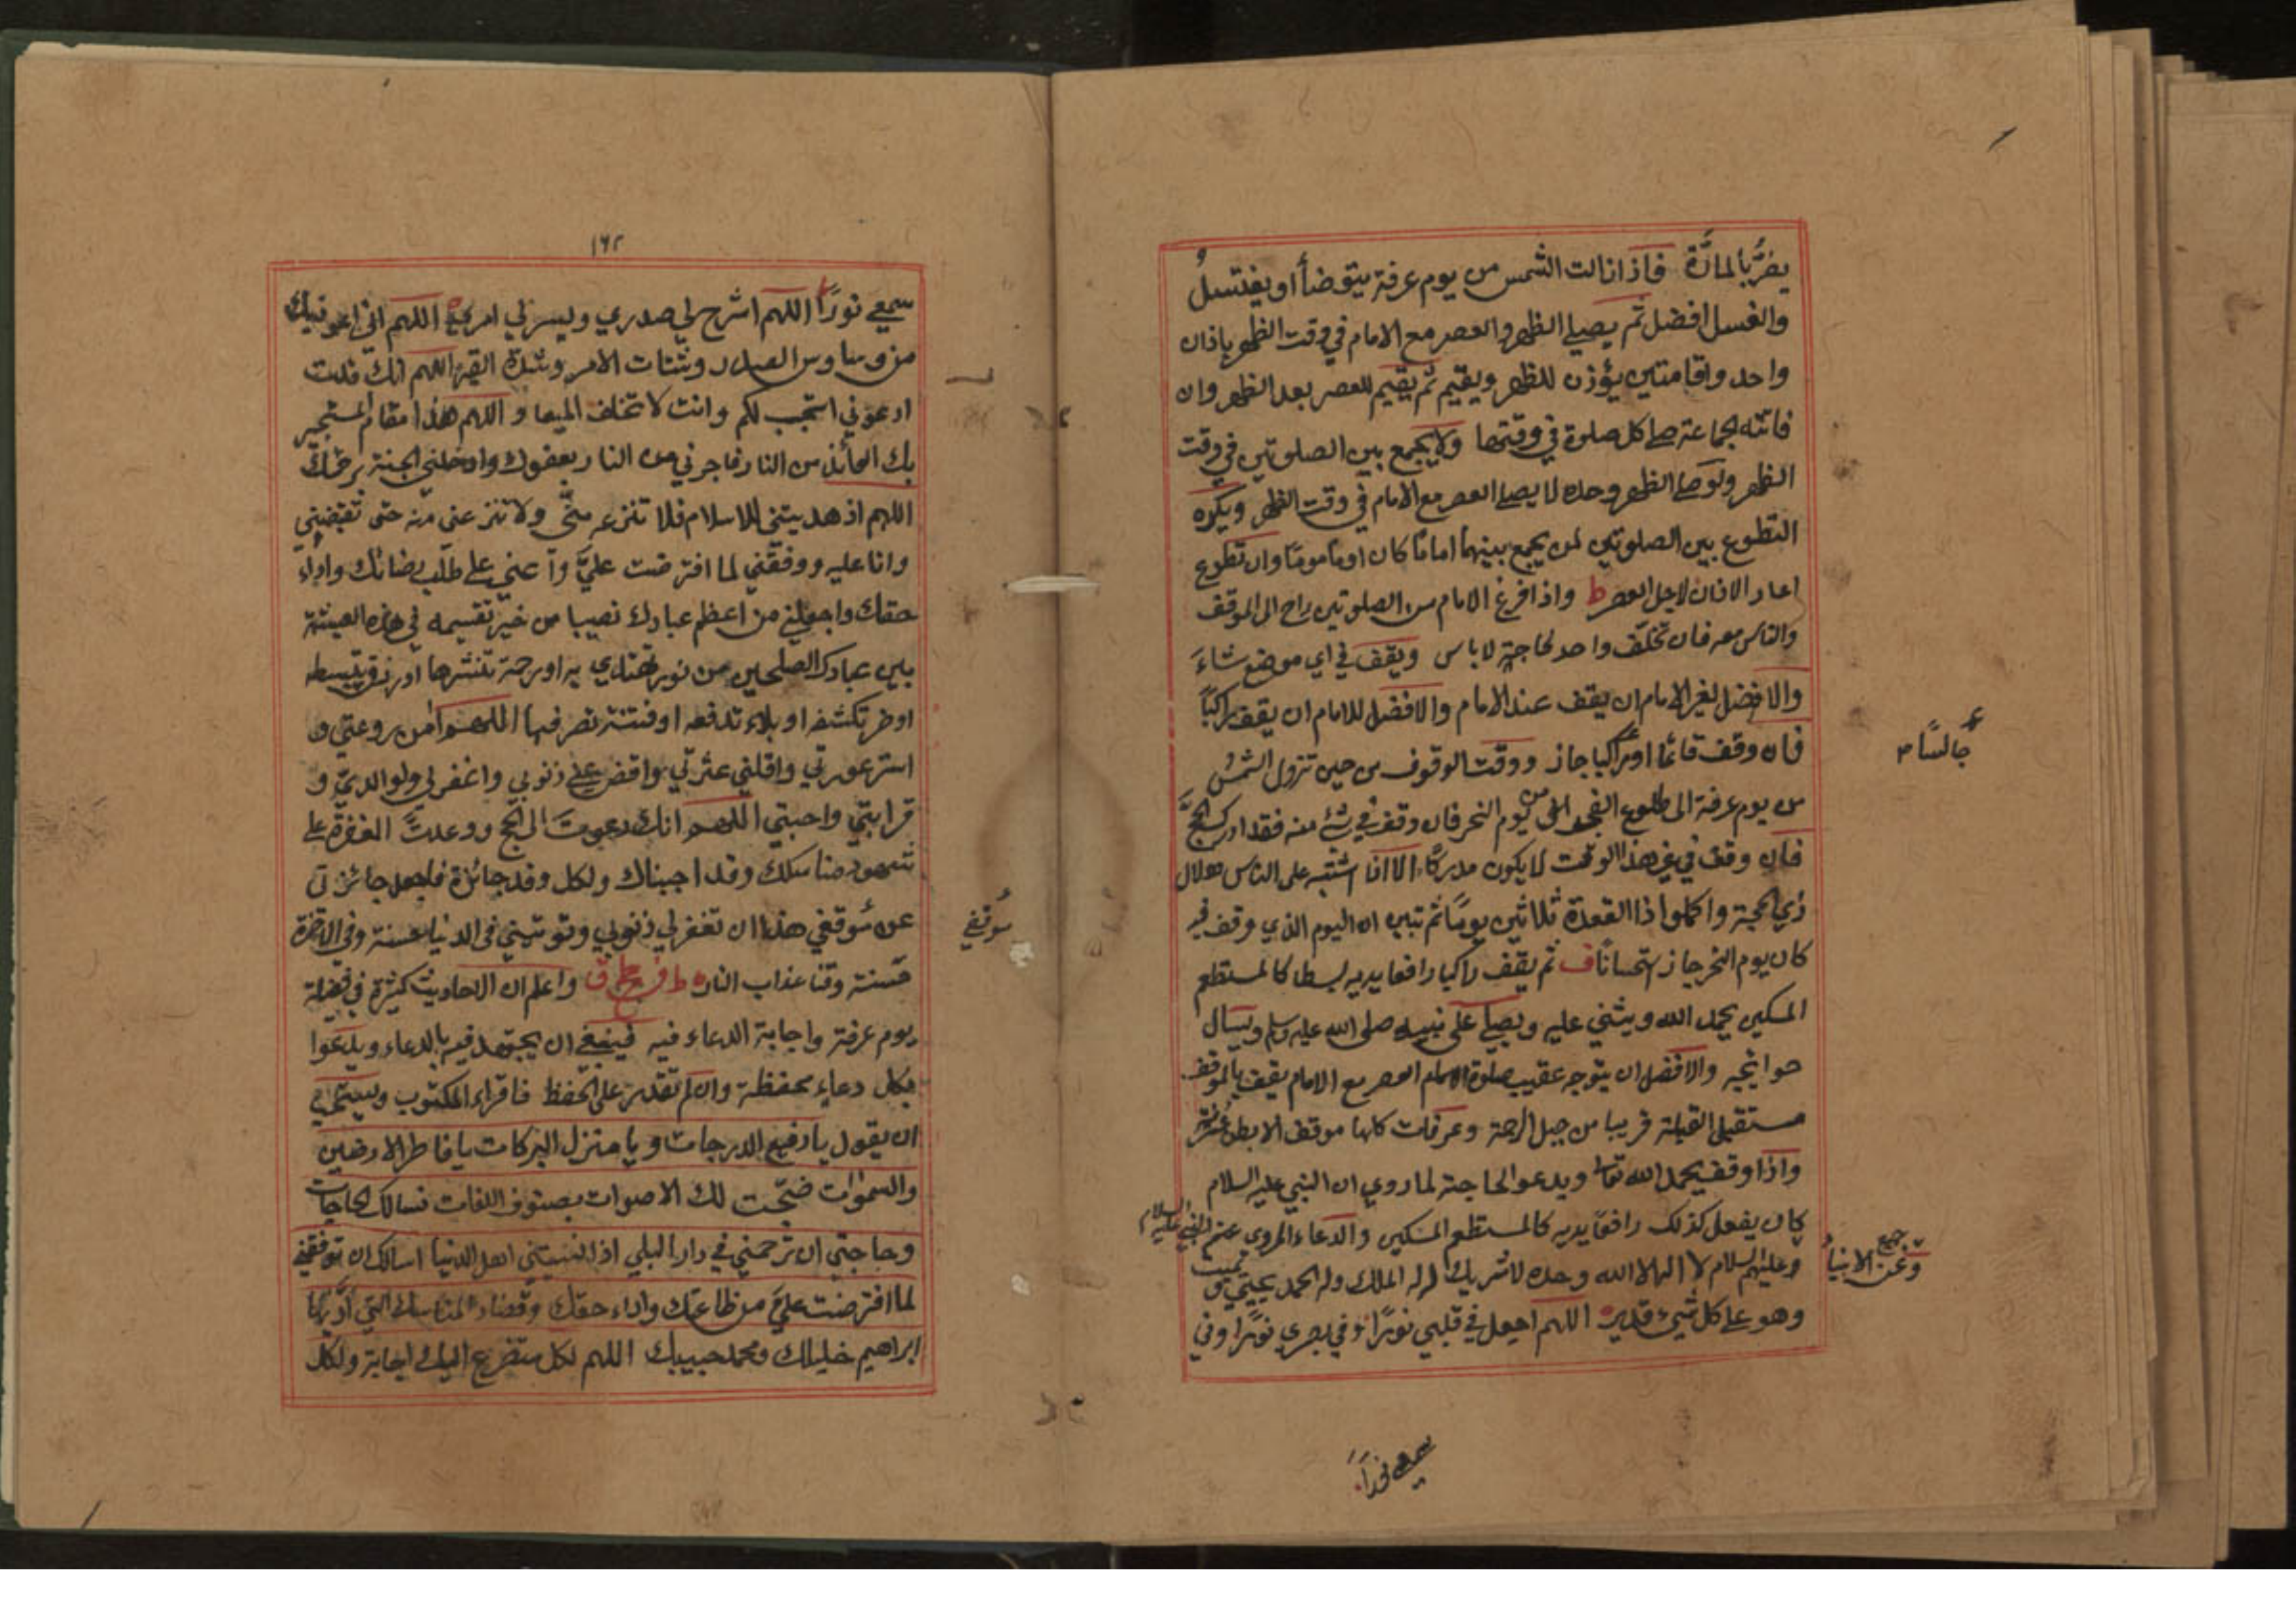 يضرّ بالمارّة فاذا زالت الشمس من يوم عرفة يتوضأ او يغتسل و
والغسل افضل ثم يصلي الظهر والعصر مع الامام في وقت الظهر باذان
واحد واقامتين يؤذن للظهر ويقيم ثم يقيم للعصر بعد الظهر وان
فاتته الجماعة صلى كل صلوة في وقتها ولا يجمع بين الصلوتين في وقت
الظهر ولو صلى الظهر وحده لا يصلي العصر مع الامام في وقت الظهر ويكره
التطوع بين الصلوتين لمن يجمع بينهما اماما كان او مأموما وان تطوع
اعاد الاذان لاجل العصر ط واذا فرغ الامام من الصلوتين راح الى الموقف
والناس معه فان تخلّف واحد لحاجة لا باس ويقف في اي موضع شاء
والافضل لغير الامام ان يقف عند الامام والافضل للامام ان يقف راكبًا
فان وقف قائما او راكبا جاز ووقت الوقوف من حين تزول الشمس
جالسًا
من يوم عرفة الى طلوع الفجر من يوم النحر فان وقف في شئ منه فقد ادرك الحج
فان وقف في غير هذا الوقت لا يكون مدركًا الا اذا اشتبه على الناس هلال
ذي الحجة واكملوا ذا القعدة ثلاثين يومًا ثم تبين ان اليوم الذي وقف فيه
كان يوم النحر جاز استحسانًا ف ثم يقف راكبا رافعا يديه بسطا كالمستطعم
المسكين يحمد الله ويثني عليه ويصلي على نبيه صلى الله عليه وسلم ويسأل
حوائجه والافضل ان يتوجه عقيب صلوة العصر مع الامام يقف بالموقف
مستقبل القبلة قريبا من جبل الرحمة وعرفات كلها موقف الا بطن عرنة
واذا وقف يحمد الله تعالى ويدعو الحاجة لما روي ان النبي عليه السلام
كان يفعل كذلك رافعًا يديه كالمستطعم المسكين والدعاء المروي عن النبي عليه السلام
وعن جميع الانبياء
وعليهم السلام لا اله الا الله وحده لا شريك له له الملك وله الحمد يحيي ويميت
وهو على كل شيء قدير اللهم اجعل في قلبي نورًا وفي بصري نورًا وفي
سمعي نورًا
١٦٢
سمعي نورًا اللهم اشرح لي صدري ويسر لي امري اللهم اني اعوذ بك
من وساوس الصدر وشتات الامر وشدة القبر اللهم انك قلت
ادعوني استجب لكم وانت لا تخلف الميعاد اللهم هذا مقام المستجير
بك العائذ من النار فاجرني من النار بعفوك وادخلني الجنة برحمتك
اللهم اذ هديتني للاسلام فلا تنزعه منّي ولا تنزعني منه حتى تقبضني
وانا عليه ووفقني لما افترضت عليّ واعني على طلب رضائك واداء
حقك واجعلني من اعظم عبادك نصيبا من خير تقسيمه في هذه العشية
بين عبادك الصلحين من نور تهتدي به او رحمة تنشرها او رزق تبسطه
او ضر تكشفه او بلاء تدفعه او فتنة تصرفها اللهم آمن روعتي و
استر عورتي واقلني عثرتي واقض عني ذنوبي واغفر لي ولوالدي و
قرابتي واحبتي اللهم انك دعوت الى الحج ووعدت المغفرة على
شهود مناسكك وقد اجبناك ولكل وفد جائزة فاجعل جائزتي
عن موقفي هذا ان تغفر لي ذنوبي وتوتيني في الدنيا حسنة وفي الاخرة
موقفي
حسنة وقنا عذاب النار واعلم ان الاحاديث كثيرة في فضيلة
يوم عرفة واجابة الدعاء فيه فينبغي ان يجتهد فيه بالدعاء ويدعوا
بكل دعاء يحفظه وان لم تقدر على الحفظ فاقراء المكتوب ويستحب
ان يقول يا رفيع الدرجات ويا منزل البركات يا فاطر الارضين
والسموات ضجّت لك الاصوات بصنوف اللغات نسالك الحاجات
وحاجتي ان ترحمني في دار البلي اذا نسيتني اهل الدنيا اسالك ان توفقني
لما افترضت عليّ من طاعتك واداء حقك وقضاء المناسك التي
ابراهيم خليلك ومحمد حبيبك اللهم لكل متضرع اليك اجابة ولكل